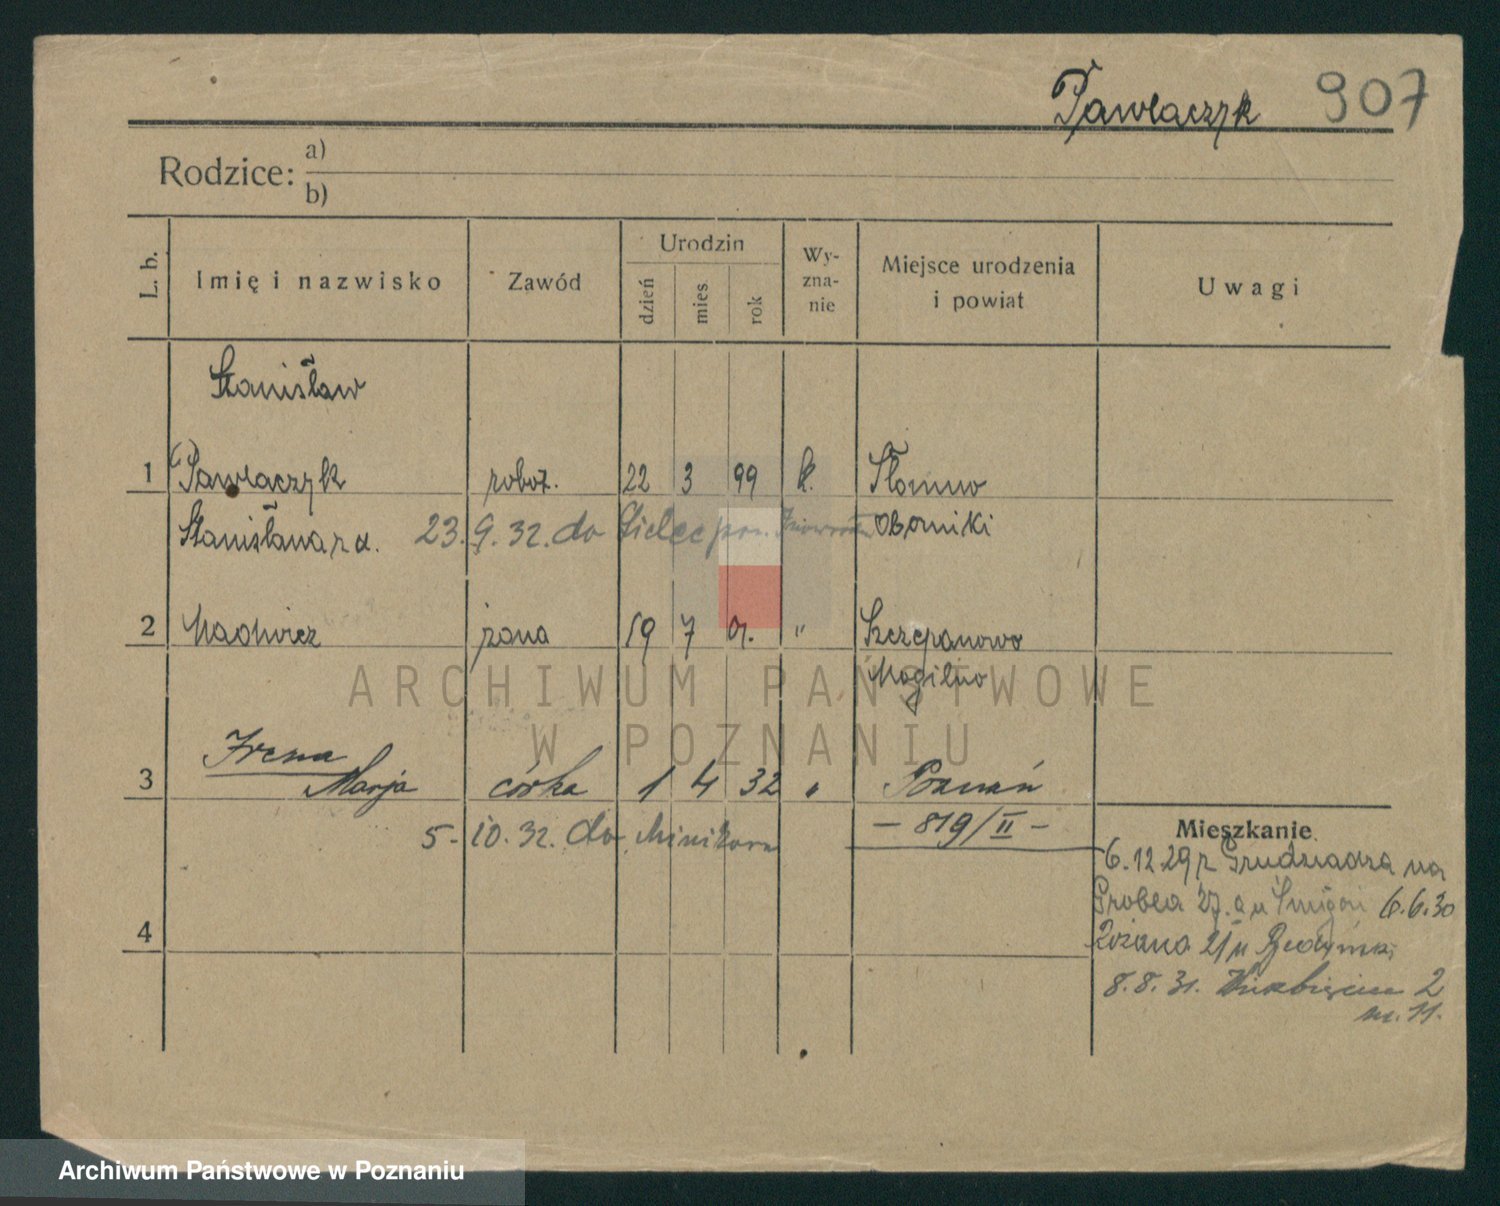 Pawlaczyk 907
Rodzice: a)
b)
L. b. Imię i nazwisko Zawód Urodzin dzień mies rok Wy-zna-nie Miejsce urodzenia i powiat Uwagi
Stanisław
1 Pawlaczyk robot. 22 3 99 k. Słomowo
Stanisława z d. 23. 9. 32. do pow. Oborniki
2 żona 19 7 01. " Szczepanowo
Mogilno
ARCHIWUM PAŃSTWOWE
W POZNANIU
Irena
3 Marja córka 1 4 32 " Poznań
5. 10. 32. do Minikowa — 819/II —
4
Mieszkanie
6.12 29 z Grudziądza na
Grobla 27. a u 6.6.30
Różana 21 u
8.8.31. 2
m. 11.
Archiwum Państwowe w Poznaniu